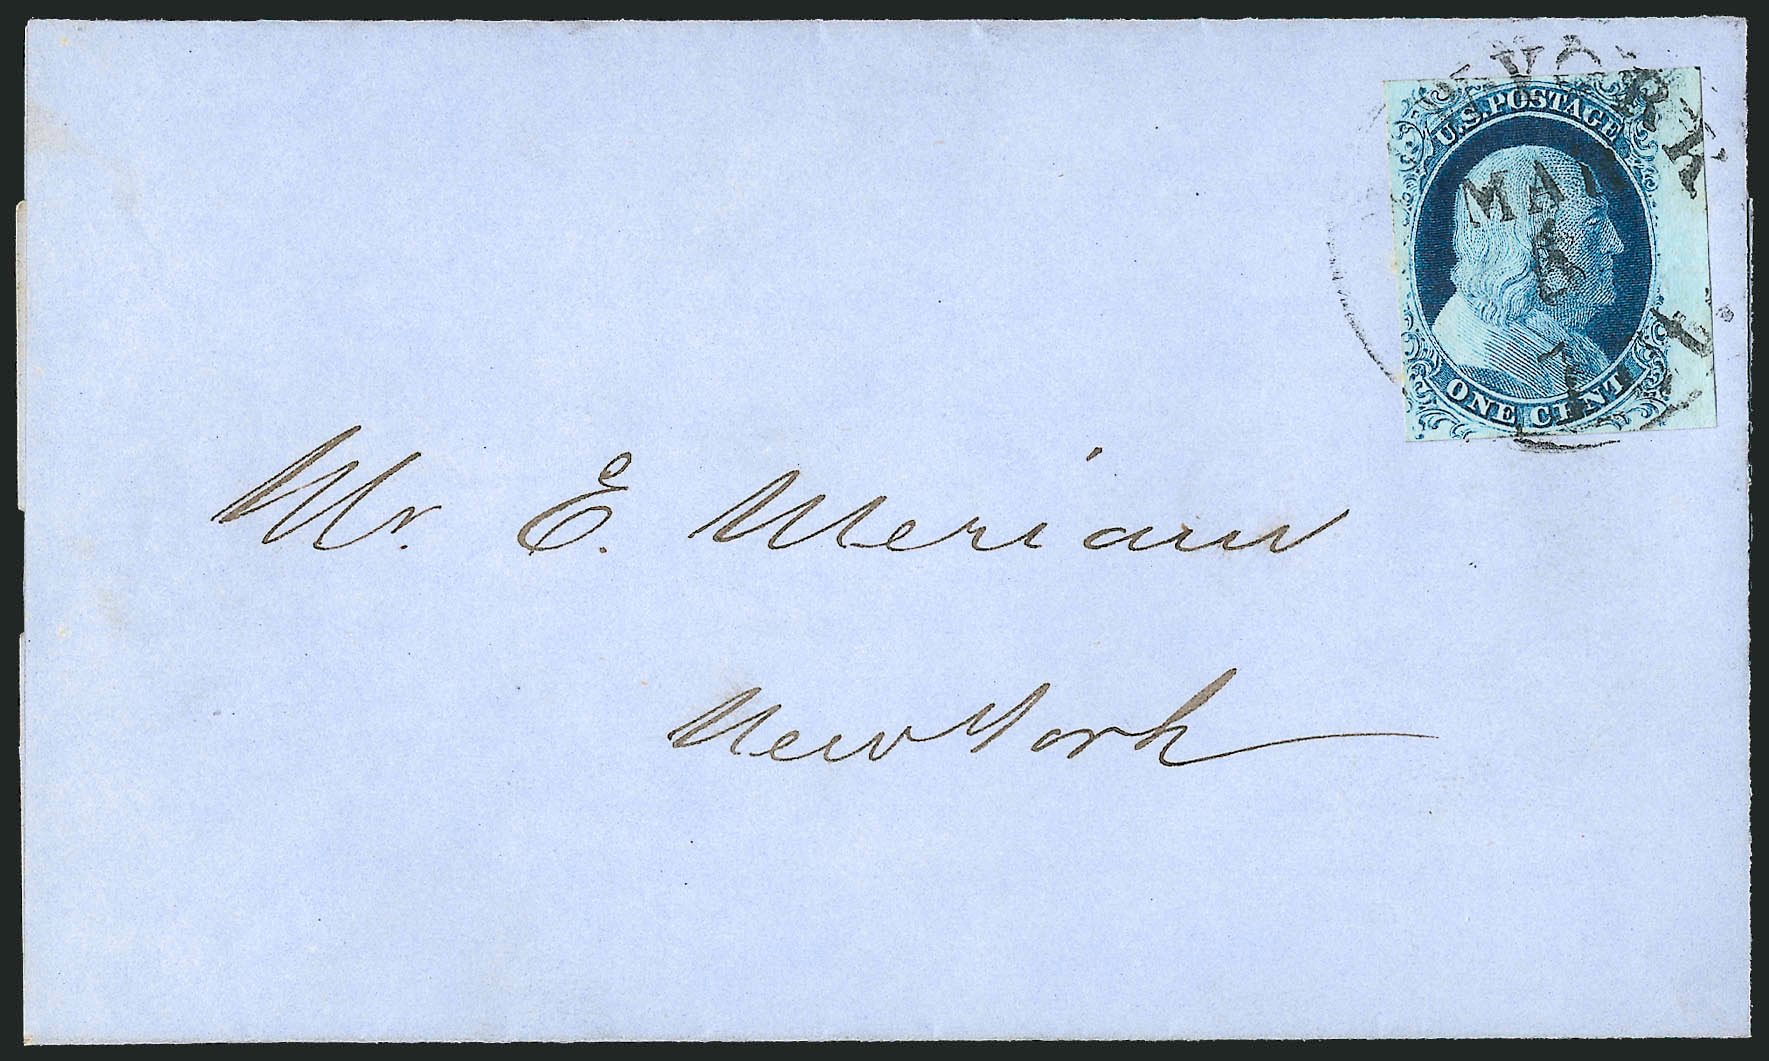 YORK
U.S. POSTAGE
MAR
ONE CENT
Mr. E. Meriam
New York